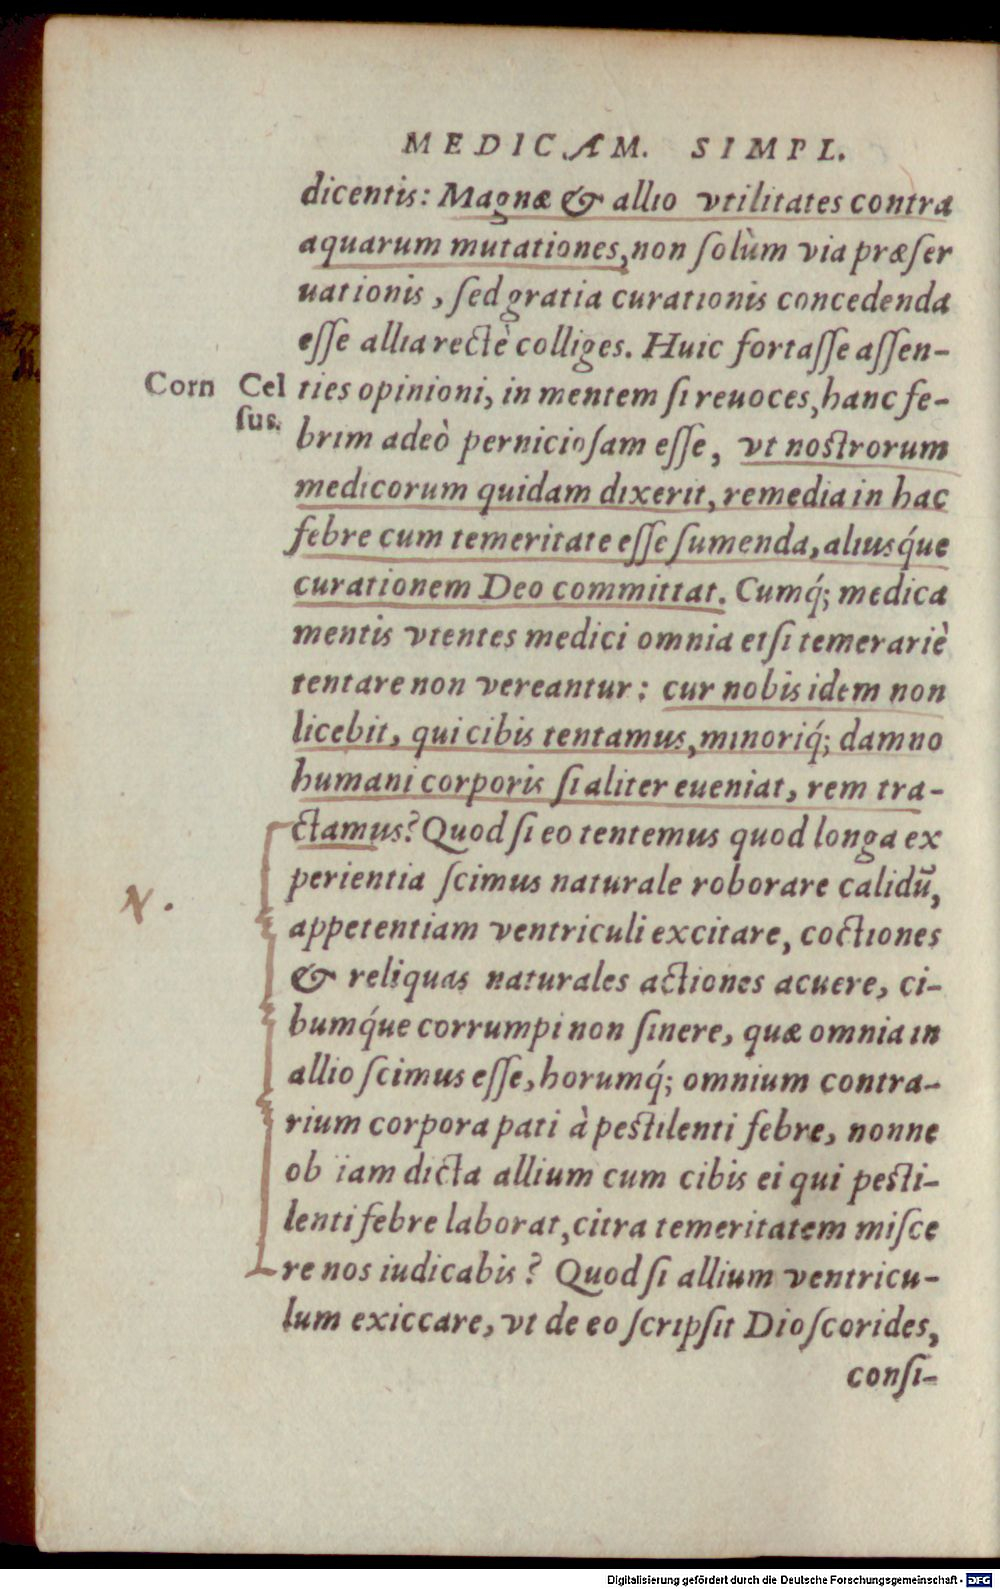 MEDICAM. SIMPL.
dicentis: Magnæ & allio vtilitates contra
aquarum mutationes, non ſolùm via præſer
uationis, ſed gratia curationis concedenda
eſſe allia rectè colliges. Huic fortaſſe aſſen-
Corn Cel
ſus.
ties opinioni, in mentem ſi reuoces, hanc fe-
brim adeò pernicioſam eſſe, vt noſtrorum
medicorum quidam dixerit, remedia in hac
febre cum temeritate eſſe ſumenda, aliusq́ue
curationem Deo committat. Cumq́; medica
mentis vtentes medici omnia etſi temerariè
tentare non vereantur: cur nobis idem non
licebit, qui cibis tentamus, minoriq́; damno
humani corporis ſi aliter eueniat, rem tra-
ctamus? Quod ſi eo tentemus quod longa ex
perientia ſcimus naturale roborare calidū,
N.
appetentiam ventriculi excitare, coctiones
& reliquas naturales actiones acuere, ci-
bumq́ue corrumpi non ſinere, quæ omnia in
allio ſcimus eſſe, horumq́; omnium contra-
rium corpora pati à peſtilenti febre, nonne
ob iam dicta allium cum cibis ei qui peſti-
lenti febre laborat, citra temeritatem miſce
re nos iudicabis? Quod ſi allium ventricu-
lum exiccare, vt de eo ſcripſit Dioſcorides,
conſi-
Digitalisierung gefördert durch die Deutsche Forschungsgemeinschaft - DFG